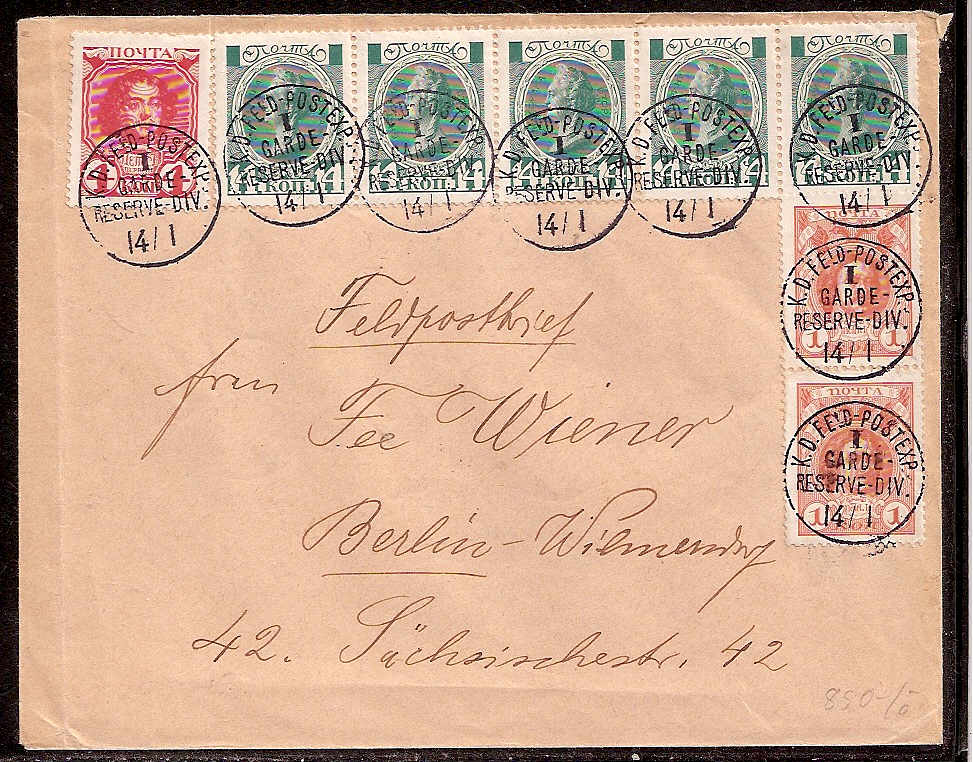 ПОЧТА ПОЧТА ПОЧТА ПОЧТА ПОЧТА ПОЧТА
14 КОП. 14 14 КОП. 14 14 КОП. 14 14 КОП. 14 14 КОП. 14
K.D. FELD-POSTEXP. I GARDE-RESERVE-DIV. 14/1
K.D. FELD-POSTEXP. I GARDE-RESERVE-DIV. 14/1
K.D. FELD-POSTEXP. I GARDE-RESERVE-DIV. 14/1
K.D. FELD-POSTEXP. I GARDE-RESERVE-DIV. 14/1
K.D. FELD-POSTEXP. I GARDE-RESERVE-DIV. 14/1
K.D. FELD-POSTEXP. I GARDE-RESERVE-DIV. 14/1
ПОЧТА
K.D. FELD-POSTEXP.
I
GARDE-
RESERVE-DIV.
14/1
1 1
ПОЧТА
K.D. FELD-POSTEXP.
I
GARDE-
RESERVE-DIV.
14/1
1 1
Feldpostbrief
Frau
Fee Wiener
Berlin-Wilmersdorf
42. Sächsischestr. 42